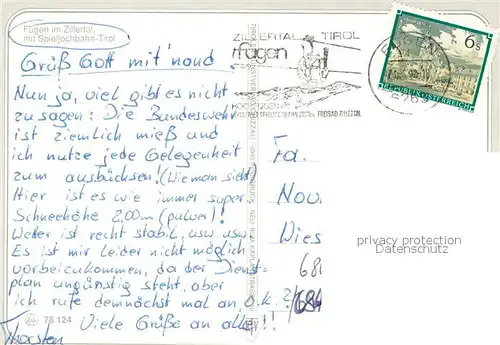 Fügen im Zillertal,
mit Spieljochbahn-Tirol
Grüß Gott mit'nand!
Nun ja, viel gibt es nicht
zu sagen: Die Bundeswehr
ist ziemlich mieß und
ich nutze jede Gelegenheit
zum ausbüchsen! (Wie man sieht)
Hier ist es wie immer super
Schneehöhe 2,00m (pulver)!
Wetter ist recht stabil, usw. usw.
Es ist mir leider nicht möglich
vorbeizukommen, da der Dienst-
plan ungünstig steht, aber
ich rufe demnächst mal an, o.k.?
Viele Grüße an alle!!
Thorsten
78 124
ZILLERTAL TIROL
fügen
6263
6s
REPUBLIK ÖSTERREICH
Fa.
Nov
Wies
privacy protection
Datenschutz